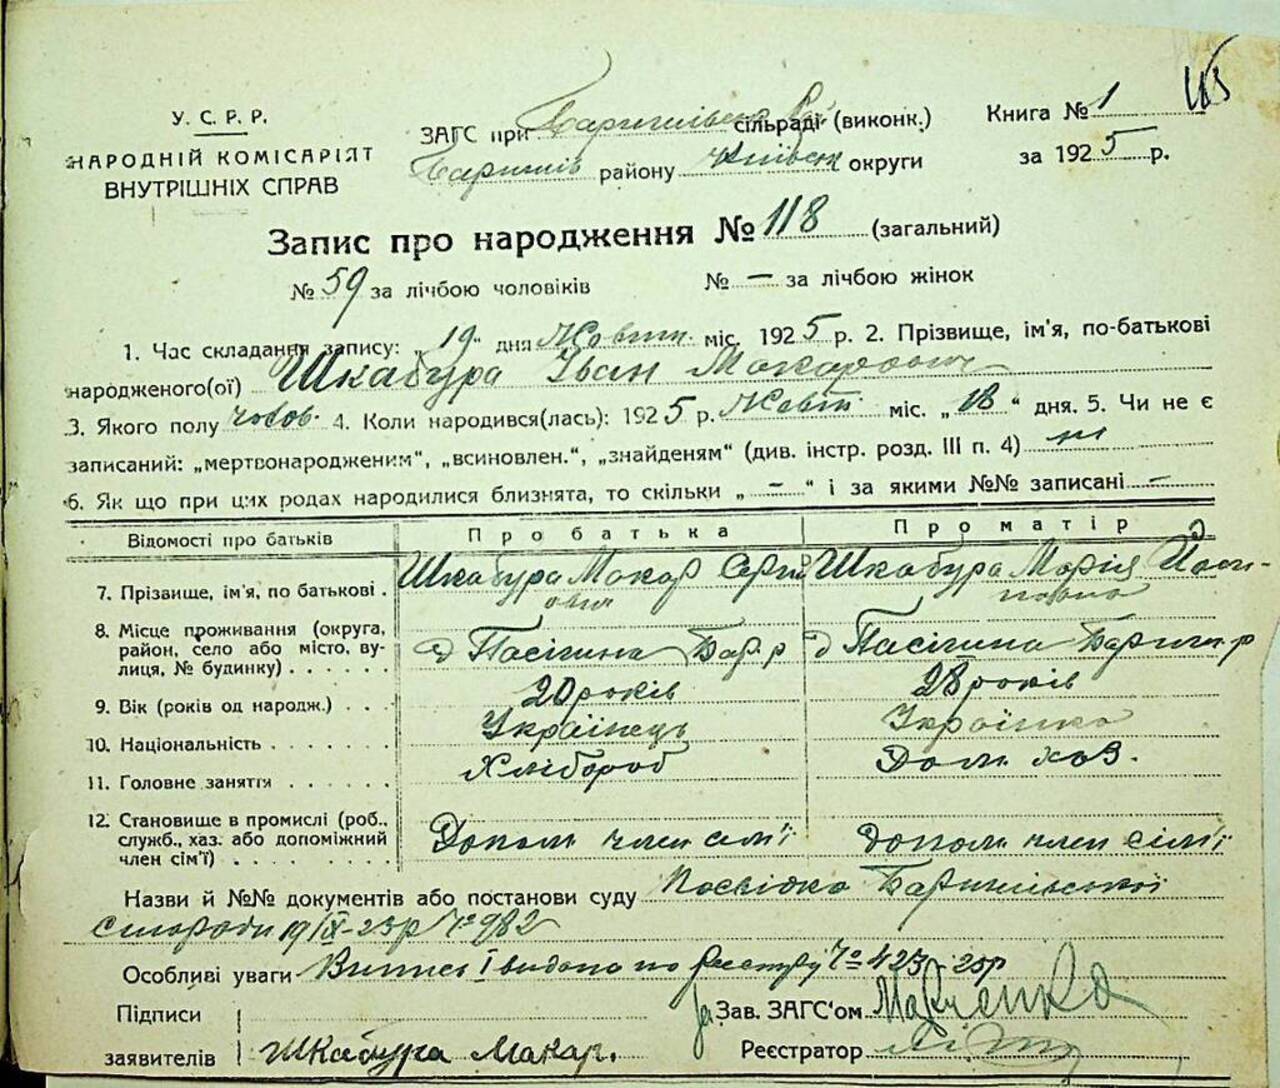 115
У.С.Р.Р.
НАРОДНІЙ КОМІСАРІЯТ
ВНУТРІШНІХ СПРАВ
ЗАГС при Баришівськ сільраді (виконк.)
Баришів району Київськ округи
Книга № 1
за 1925 р.
Запис про народження № 118 (загальний)
№ 59 за лічбою чоловіків № — за лічбою жінок
1. Час складання запису: „19" дня Жовтн. міс. 1925 р. 2. Прізвище, ім'я, по-батькові
народженого(ої) Шкабура Іван Макарович
3. Якого полу чолов. 4. Коли народився(лась): 1925 р. Жовт міс. „18" дня. 5. Чи не є
записаний: „мертвонародженим", „всиновлен.", „знайденям" (див. інстр. розд. III п. 4) ні
6. Як що при цих родах народилися близнята, то скільки „—" і за якими №№ записані —
Відомості про батьків Про батька Про матір
7. Прізвище, ім'я, по батькові . Шкабура Макар Сергійович Шкабура Марія Йосиповна
8. Місце проживання (округа,
район, село або місто, ву-
лиця, № будинку) . . . . . . д Пасічина Бар. р д Пасічина Бариш. р
9. Вік (років од народж.) . . . 20 років 28 років
10. Національність . . . . . . . Українець Українка
11. Головне заняття . . . . . . Хлібороб Дом. хаз.
12. Становище в промислі (роб.,
служб., хаз. або допоміжний
член сім'ї) . . . . . . . . . Допом член сім'ї Допом. член сім'ї
Назви й №№ документів або постанови суду Посвідка Баришівської
сільради 19/IX-25р № 982
Особливі уваги Випис І видано по реєстру № 423 25р
Підписи
заявителів Шкабура Макар.
За Зав. ЗАГС'ом Марченко
Реєстратор